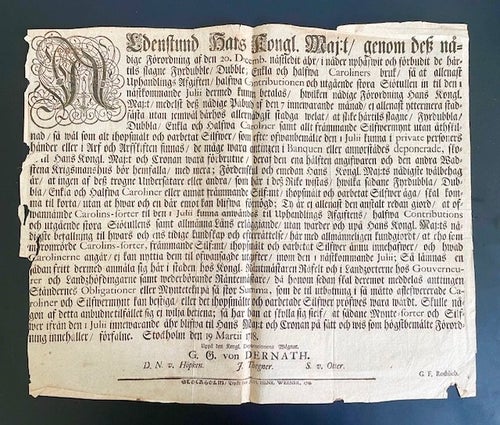 Edenstund Hans Kongl. Maj:t/ genom deß nå-
dige Förordning af den 20. Decemb. näst ått åhr/ nåder uphäfwit och förbudit de här-
tils slagne Fyrdubble/ Dubble/ Enkla och halfwa Caroliners bruk/ så at allenast
Uphandlings Afgiften/ halfwa Contributionen och utgående stora Siötullen in til den 1
nästkommande Julii dermed kunna betalas/ hwilken nådige Förordning Hans Kongl.
Maj:t medelst deß nådige Påbud af den 7 innewarande månad/ ej allenast ytterligare stad-
fästa utan jemwäl därhos allernådigst stadga welat/ at slike härtils slagne/ Fyrdubbla/
Dubbla/ Enkla och Halfwa Caroliner samt allt främmande Silfwermynt utan åthskil-
nad/ så wäl som alt ihopsmält och oarbetat Silfwer/ som efter ofwanbemälte den 1 Julii hos private personers
händer eller i Arf och Arfskiften finnas/ de måge wara antingen i Banquen eller annorstädes deponerade, sko-
la til Hans Kongl. Maj:t och Cronan wara förbrutne
Krigsmanshus bör hemfalla/ med mera; Förden skul och emedan Hans Kongl. Maj:ts nådigste wälbehag
är/ at ingen af deß trogne Undersåtare eller andra/ som här i deß Rike wistas/ hwilka sådane Fyrdubbla/ Dub-
bla/ Enkla och Halfwa Caroliner eller annat främmande Silfmynt/ ihopsmält och oarbetat Silfwer äga/ skal kom-
ma til korta/ utan at hwar och en där emot kan blifwa förnögd; Ty är ej allenast den anstalt redan giord/ at of-
wannämnde Carolins-sorter til den 1 Julii kunna användas til Uphandlings Afgiftens/ halfwa Contributions
och utgående stora Siötullens samt allmänna Låns erläggande/ utan warder och upå Hans Kongl. Maj:ts nå-
digste befallning til hwars och ens tidige kundskap och efterrättelse/ här med allmänneligen kundgjord/ at the som
merberörde Carolins-sorter, främmande Silfmt/ ihopsmält och oarbetat Silfwer ännu innehafwer/ och hwad
Carolinerne angår/ ej kan nyttia dem til ofwansagde utgifter/ innom den 1 nästkommande Julii; Så kunnas en
sådan fritt dermed anmäla sig här i staden hos Kongl. Räntmästaren Räfelt och i Landzorterne hos Gouverneu-
rer och Landshöfdingarne samt wederbörande Räntmästare/
Ständernes Obligationer eller Myntetekn på så stor Summa, som de til utbotning i så måtto aflefwererade Ca-
roliner och Silfwermynt kan bestiga/ eller det ihopsmälte och oarbetade Silfwer pröfwes wara wärdt. Skulle nå-
gon af detta anbudne tilfället sig ei wilja betiena; så har han at skylla sig sielf/ at sådane Mynte-sorter och Silf-
wer ifrån den 1 Julii innewarande åhr blifwa til Hans Maj:t och Cronan på sätt och wis som högstbemälte Förord-
ning innehåller/ förfalne. Stockholm den 19 Martii 1718.
Uppå den Kongl. Deputationens Wägnar.
G. G. von DERNATH.
D. N. v. Höpken. J. Thegner. S. v. Otter.
G. F. Rothlieb.
STOCKHOLM/ Tryckt hos JOH. HENR. WERNER, 1718.